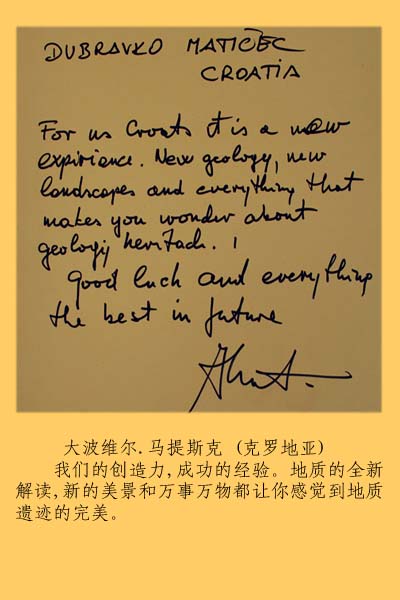 DUBRAVKO MATIČEC
CROATIA
For us Croats it is a new
expirience. New geology, new
landscapes and everything that
makes you wonder about
geology heritach. !
Good luck and everything
the best in future
大波维尔.马提斯克 (克罗地亚)
我们的创造力,成功的经验。地质的全新
解读,新的美景和万事万物都让你感觉到地质
遗迹的完美。